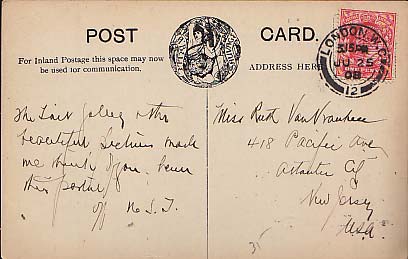 POST
CARD.
For Inland Postage this space may now
be used for communication.
ADDRESS HERE
LONDON. W.C.
5.15 PM
JU 25
08
12
The
gallery & the
beautiful
made
me think of you.
this
of N.S.T.
Miss Ruth
418 Pacific Ave
Atlantic City
New Jersey
U.S.A.